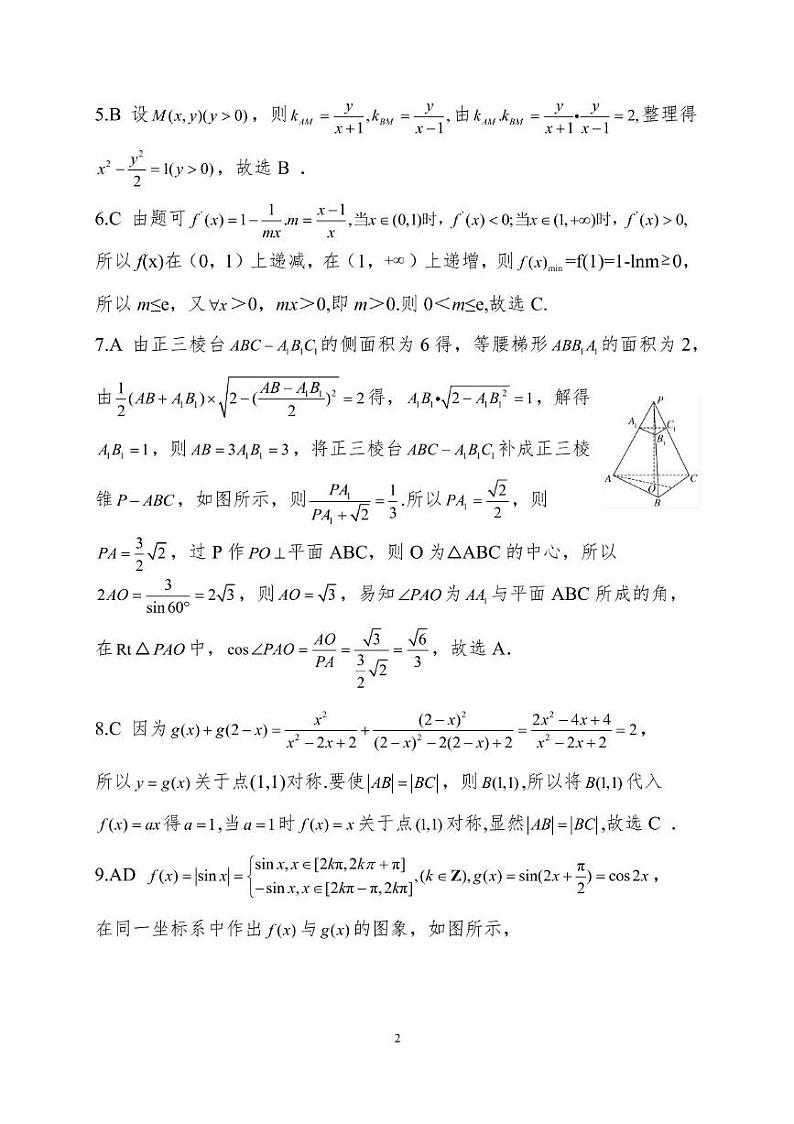 5.B 设 M(x, y)(y > 0)，则 k_{AM} = \frac{y}{x+1}, k_{BM} = \frac{y}{x-1}, 由 k_{AM}.k_{BM} = \frac{y}{x+1}•\frac{y}{x-1} = 2, 整理得
x^2 - \frac{y^2}{2} = 1(y > 0)，故选 B ．
6.C 由题可 f'(x) = 1 - \frac{1}{mx}.m = \frac{x-1}{x}, 当x∈(0,1)时, f'(x) < 0; 当x∈(1,+∞)时, f'(x) > 0,
所以 f(x)在（0，1）上递减，在（1，+∞）上递增，则 f(x)_{min} =f(1)=1-lnm≥0，
所以 m≤e，又 ∀x＞0，mx＞0,即 m＞0.则 0＜m≤e,故选 C.
7.A 由正三棱台 ABC - A_1B_1C_1 的侧面积为 6 得，等腰梯形 ABB_1A_1 的面积为 2，
由 \frac{1}{2}(AB + A_1B_1)×\sqrt{2-(\frac{AB-A_1B_1}{2})^2} = 2 得，A_1B_1•\sqrt{2-A_1B_1^2} = 1，解得
A_1B_1 = 1，则 AB = 3A_1B_1 = 3，将正三棱台 ABC - A_1B_1C_1 补成正三棱
锥 P - ABC，如图所示，则 \frac{PA_1}{PA_1+\sqrt{2}} = \frac{1}{3}.所以 PA_1 = \frac{\sqrt{2}}{2}，则
PA = \frac{3}{2}\sqrt{2}，过 P 作 PO⊥平面 ABC，则 O 为△ABC 的中心，所以
2AO = \frac{3}{sin 60°} = 2\sqrt{3}，则 AO = \sqrt{3}，易知 ∠PAO 为 AA_1 与平面 ABC 所成的角，
在 Rt△PAO 中，cos∠PAO = \frac{AO}{PA} = \frac{\sqrt{3}}{\frac{3}{2}\sqrt{2}} = \frac{\sqrt{6}}{3}，故选 A．
P
A_1
C_1
B_1
A
O
C
B
8.C 因为 g(x) + g(2-x) = \frac{x^2}{x^2-2x+2} + \frac{(2-x)^2}{(2-x)^2-2(2-x)+2} = \frac{2x^2-4x+4}{x^2-2x+2} = 2，
所以 y = g(x) 关于点(1,1)对称.要使 |AB| = |BC|，则 B(1,1),所以将 B(1,1) 代入
f(x) = ax 得 a = 1,当 a = 1 时 f(x) = x 关于点 (1,1) 对称,显然 |AB| = |BC|,故选 C ．
9.AD f(x) = |sin x| = \begin{cases} sin x, x∈[2kπ, 2kπ+π] \\ -sin x, x∈[2kπ-π, 2kπ] \end{cases}, (k∈Z), g(x) = sin(2x + \frac{π}{2}) = cos 2x，
在同一坐标系中作出 f(x) 与 g(x) 的图象，如图所示，
2